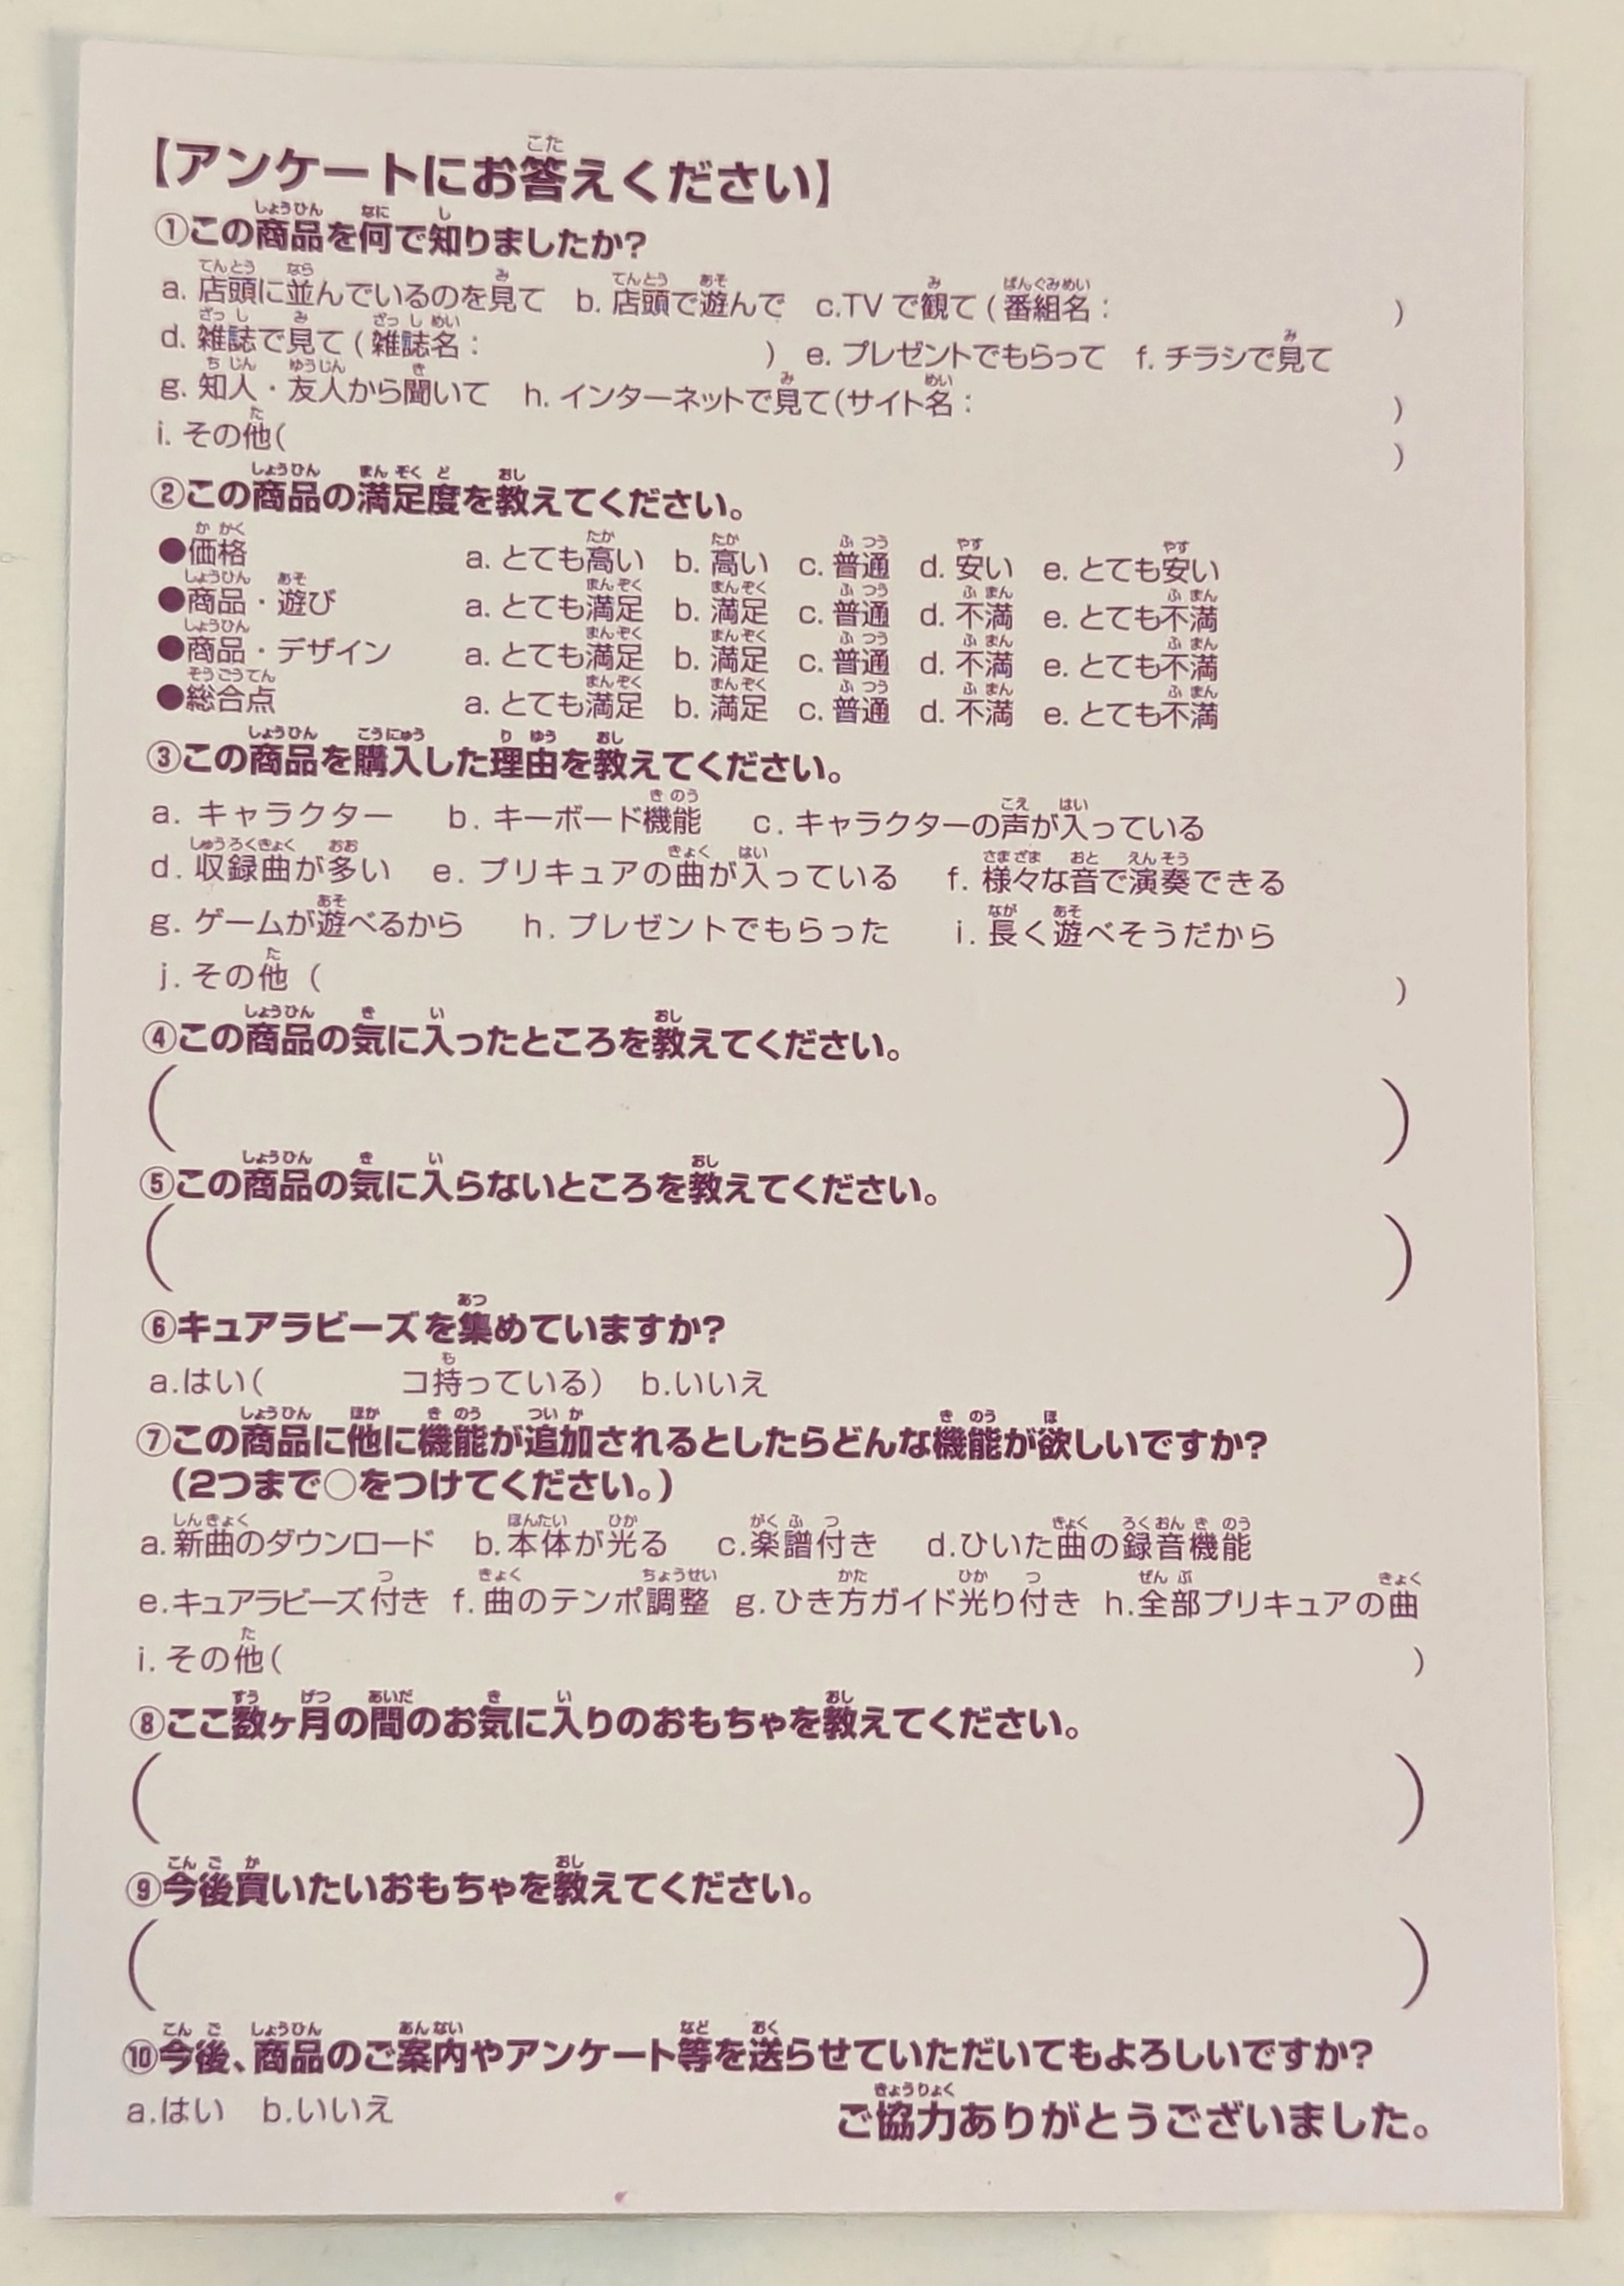 【アンケートにお答えください】
①この商品を何で知りましたか?
a. 店頭に並んでいるのを見て b. 店頭で遊んで c.TVで観て(番組名: )
d. 雑誌で見て(雑誌名: ) e. プレゼントでもらって f. チラシで見て
g. 知人・友人から聞いて h. インターネットで見て(サイト名: )
i. その他( )
②この商品の満足度を教えてください。
●価格 a. とても高い b. 高い c. 普通 d. 安い e. とても安い
●商品・遊び a. とても満足 b. 満足 c. 普通 d. 不満 e. とても不満
●商品・デザイン a. とても満足 b. 満足 c. 普通 d. 不満 e. とても不満
●総合点 a. とても満足 b. 満足 c. 普通 d. 不満 e. とても不満
③この商品を購入した理由を教えてください。
a. キャラクター b. キーボード機能 c. キャラクターの声が入っている
d. 収録曲が多い e. プリキュアの曲が入っている f. 様々な音で演奏できる
g. ゲームが遊べるから h. プレゼントでもらった i. 長く遊べそうだから
j. その他 ( )
④この商品の気に入ったところを教えてください。
( )
⑤この商品の気に入らないところを教えてください。
( )
⑥キュアラビーズを集めていますか?
a.はい( コ持っている) b.いいえ
⑦この商品に他に機能が追加されるとしたらどんな機能が欲しいですか?
(2つまで○をつけてください。)
a.新曲のダウンロード b.本体が光る c.楽譜付き d.ひいた曲の録音機能
e.キュアラビーズ付き f. 曲のテンポ調整 g.ひき方ガイド光り付き h.全部プリキュアの曲
i. その他( )
⑧ここ数ヶ月の間のお気に入りのおもちゃを教えてください。
( )
⑨今後買いたいおもちゃを教えてください。
( )
⑩今後、商品のご案内やアンケート等を送らせていただいてもよろしいですか?
a.はい b.いいえ
ご協力ありがとうございました。